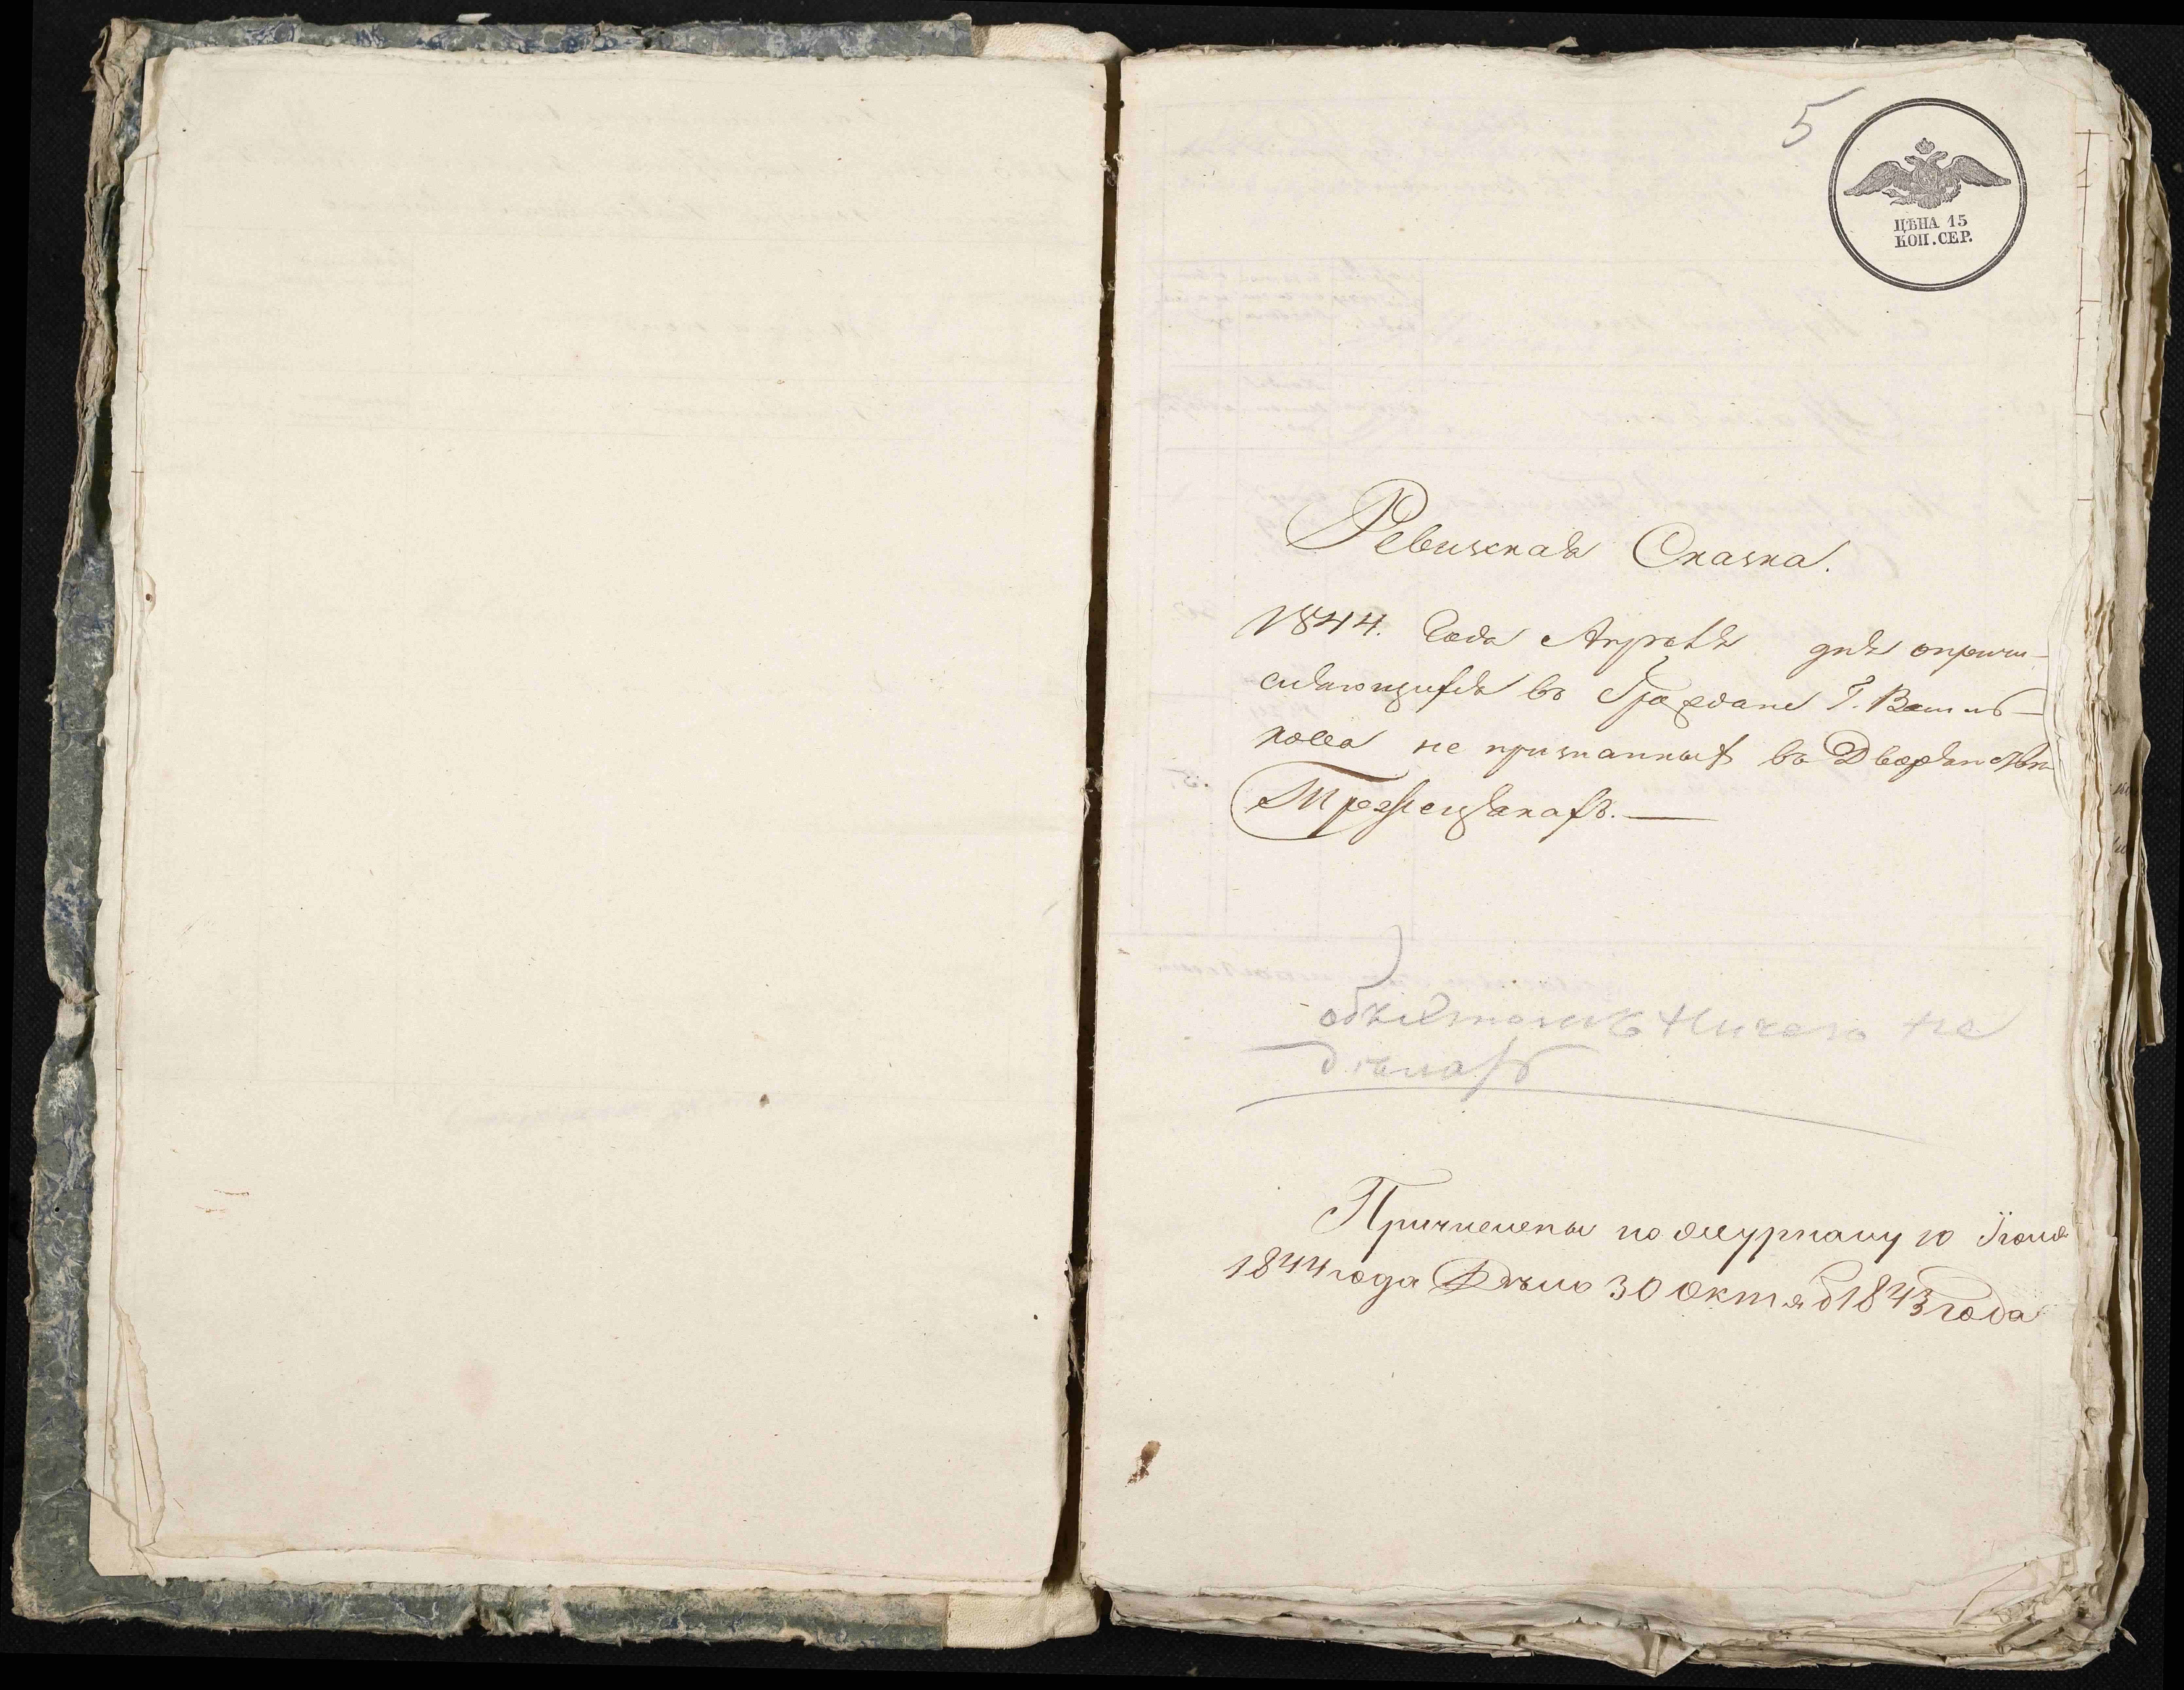 5
ЦѢНА 15
КОП. СЕР.
Ревизская Сказка.
1844. Года Апреля дня опричи-
сляющихся въ Граждане Г. Василь-
кова не признанных въ Дворянствѣ
объ этомъ Ничего не
дѣлать
Причислены по журналу 10 Iюня
1844 года Дѣло 30 Октяб 1843 года